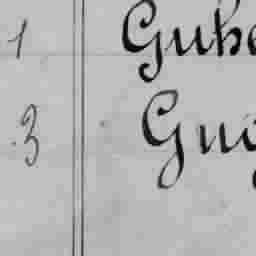 1 Gube
3 Gug